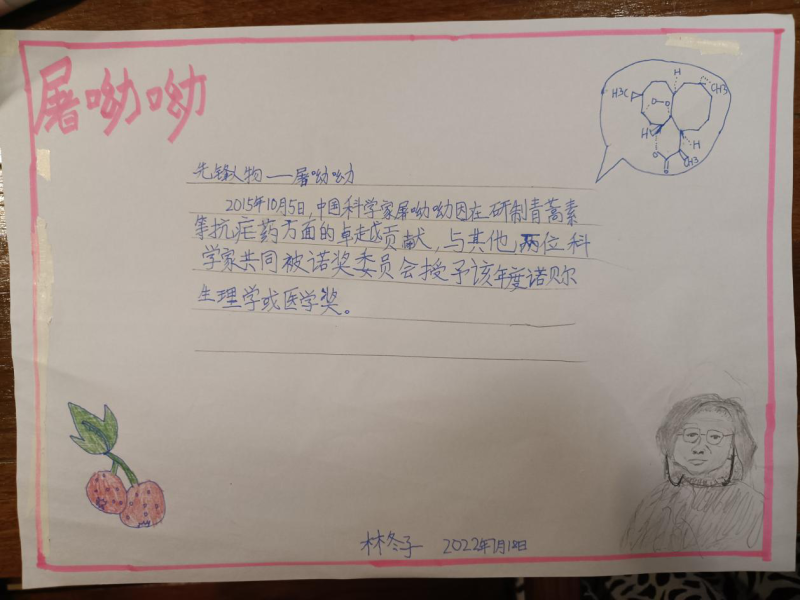 屠呦呦
H
H3C
CH3
O-O
H
H
O
O
CH3
先锋人物——屠呦呦
2015年10月5日,中国科学家屠呦呦因在研制青蒿素
等抗症药方面的卓越贡献,与其他两位科
学家共同被诺奖委员会授予该年度诺贝尔
生理学或医学奖。
林冬子 2022年7月18日